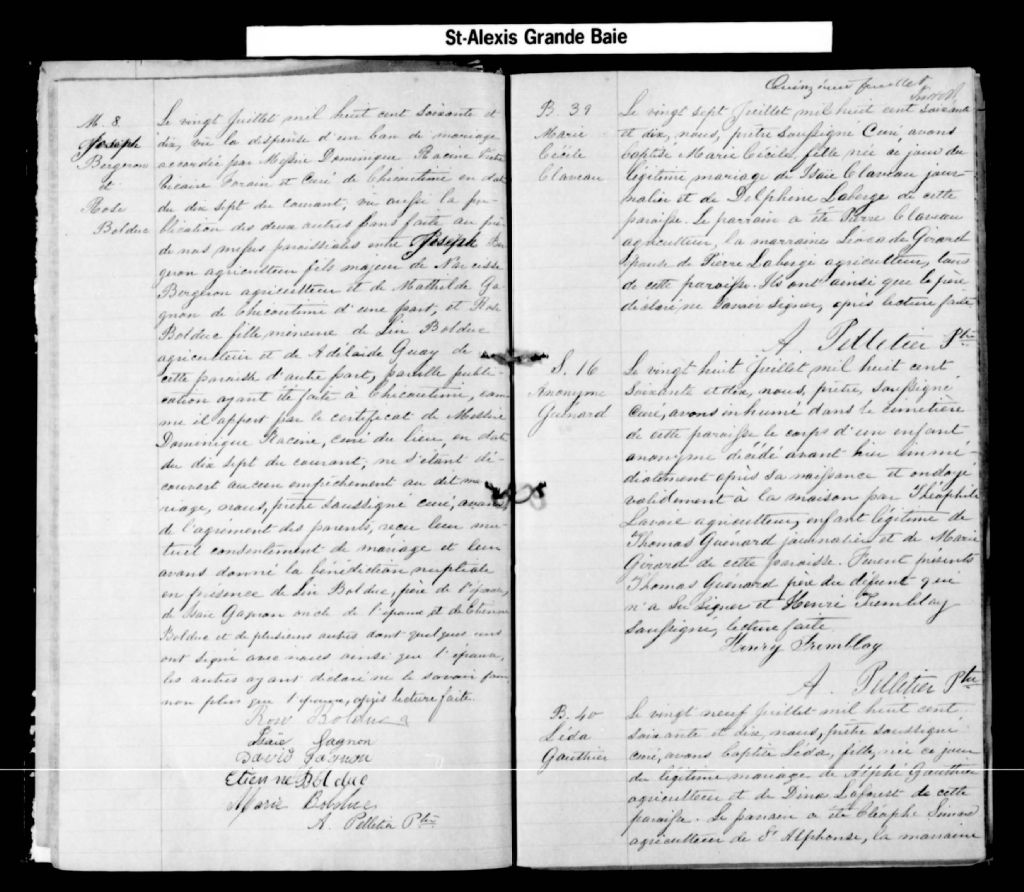 St-Alexis Grande Baie
M. 8.
Joseph
Bergeron
et
Rose
Bolduc
Le vingt Juillet mil huit cent soixante et
dix, vu la dispense d'un ban de mariage
accordée par Messire Dominique Racine Vicaire
Forain et Curé de Chicoutimi en date
du dix sept du courant, vu aussi la pu-
blication des deux autres bans faite au prône
de nos messes paroissiales entre Joseph Ber-
geron agriculteur fils majeur de Narcisse
Bergeron agriculteur et de Mathilde Ga-
gnon de Chicoutimi d'une part, et Rose
Bolduc fille mineure de Lin Bolduc
agriculteur et de Adélaide Guay de
cette paroisse d'autre part, pareille publi-
cation ayant été faite à Chicoutimi, com-
me il appert par le certificat de Messire
Dominique Racine, curé du lieu, en date
du dix sept du courant; ne s'étant dé-
couvert aucun empêchement au dit ma-
riage, nous, prêtre soussigné curé, avons
de l'agrément des parents, reçu leur mu-
tuel consentement de mariage et leur
avons donné la bénédiction nuptiale
en présence de Lin Bolduc, père de l'épouse,
de Isaïe Gagnon oncle de l'époux et de Etienne
Bolduc et de plusieurs autres dont quelques uns
ont signé avec nous ainsi que l'épouse,
les autres ayant déclaré ne le savoir faire
non plus que l'époux, après lecture faite.
Rose Bolduc
Isaïe Gagnon
David Gagnon
Etienne Bolduc
Marie Bolduc
A. Pelletier Ptre
Quinzième feuillet
B. 39
Marie
Cécile
Claveau
Le vingt sept Juillet mil huit cent soixante
et dix, nous, prêtre soussigné Curé avons
baptisé Marie Cécile, fille née ce jour du
légitime mariage de Isaïe Claveau jour-
nalier et de Delphine Laberge de cette
paroisse. Le parrain a été Pierre Claveau
agriculteur, la marraine Léocade Girard
épouse de Pierre Laberge agriculteur, tous
de cette paroisse. Ils ont ainsi que le père
déclaré ne savoir signer, après lecture faite
A. Pelletier Ptre
S. 16
Anonyme
Guénard
Le vingt huit Juillet mil huit cent
soixante et dix, nous, prêtre, soussigné
Curé, avons inhumé dans le cimetière
de cette paroisse le corps d'un enfant
anonyme décédé avant hier immé-
diatement après sa naissance et ondoyé
validement à la maison par Théophile
Lavoie agriculteur, enfant légitime de
Thomas Guénard journalier et de Marie
Girard de cette paroisse. Furent présents
Thomas Guénard père du défunt qui
n'a su signer et Henri Tremblay
soussigné, lecture faite
Henry Tremblay
A. Pelletier Ptre
B. 40
Léda
Gauthier
Le vingt neuf Juillet mil huit cent
soixante et dix, nous, prêtre soussigné
curé, avons baptisé Léda, fille, née ce jour
du légitime mariage de Alphé Gauthier
agriculteur et de Dina Laforest de cette
paroisse. Le parrain a été Cléophe Simard
agriculteur de St Alphonse, la marraine